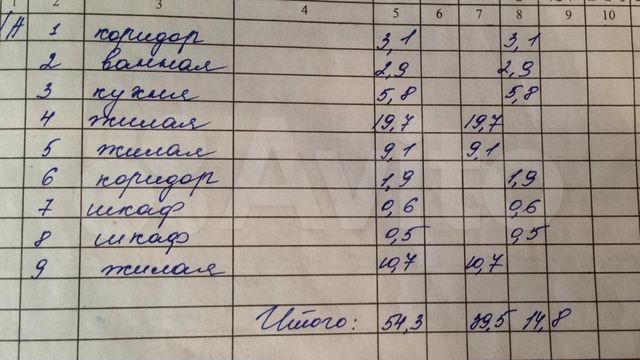 1 2 3 4 5 6 7 8 9 10
1 коридор 3,1 3,1
2 ванная 2,9 2,9
3 кухня 5,8 5,8
4 жилая 19,7 19,7
5 жилая 9,1 9,1
6 коридор 1,9 1,9
7 шкаф 0,6 0,6
8 шкаф 0,5 0,5
9 жилая 10,7 10,7
Итого: 54,3 39,5 14,8
Avito